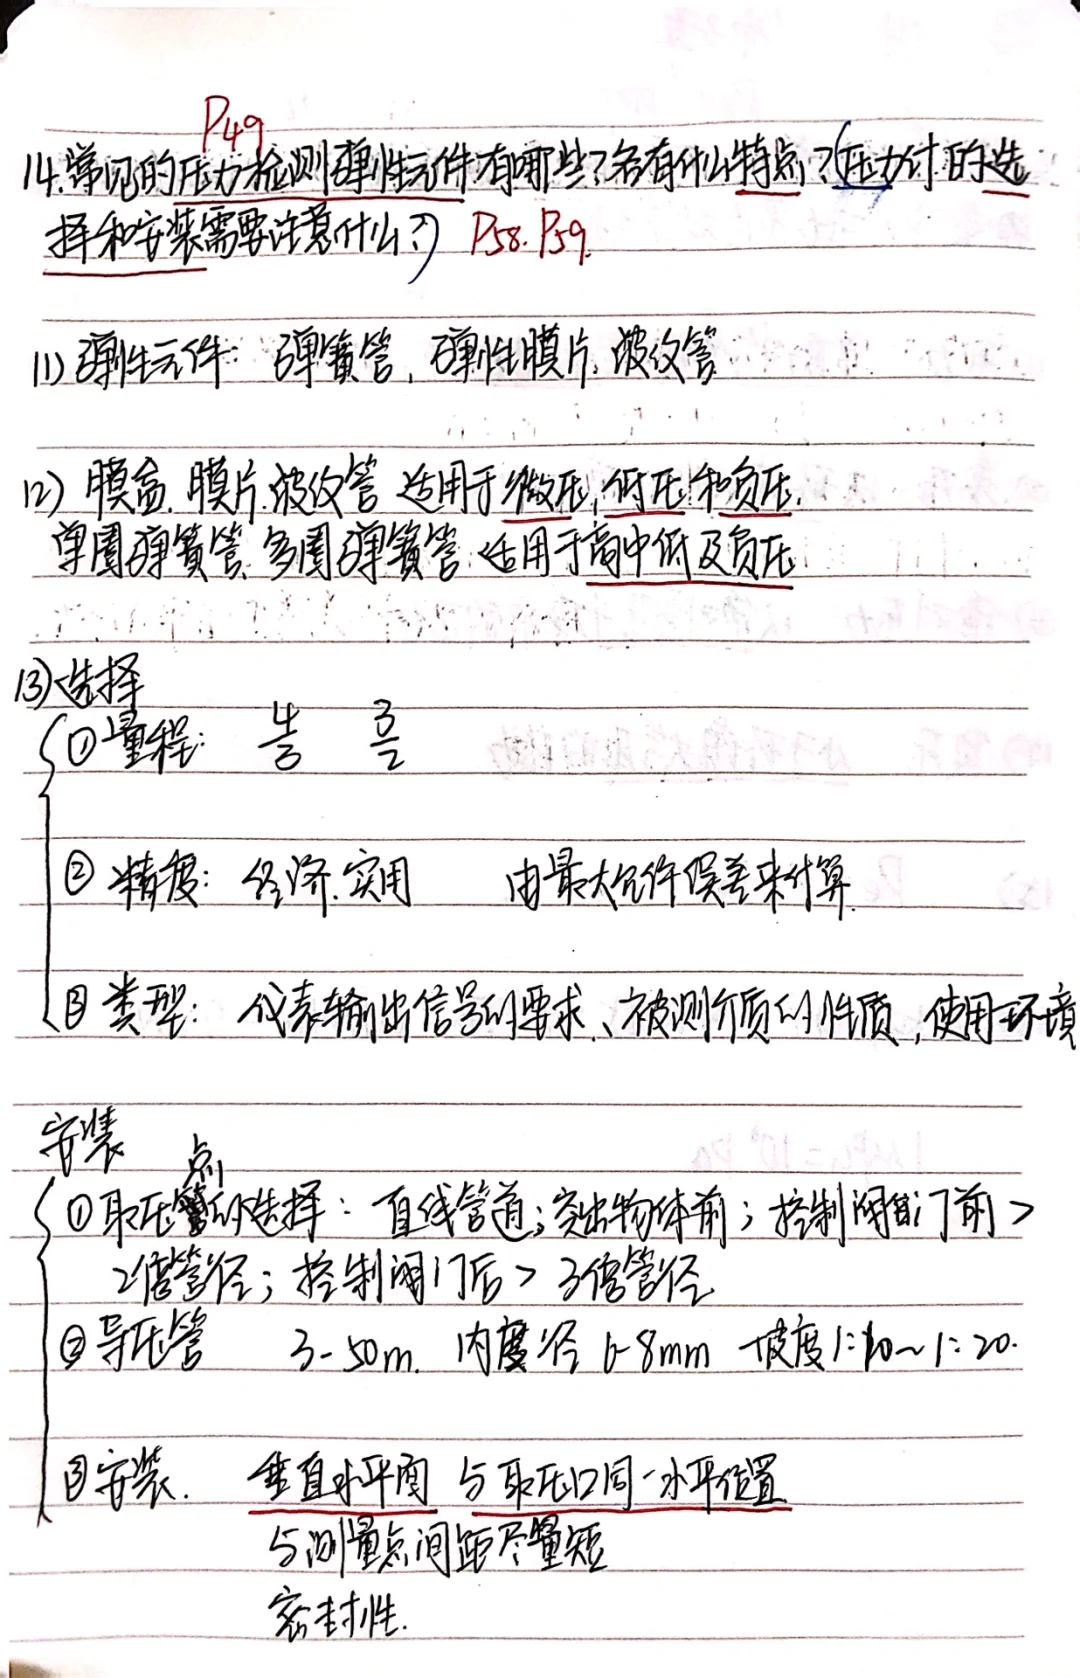 P49
14.常见的压力检测弹性元件有哪些?各有什么特点?(压力计的选
择和安装需要注意什么?) P58. P59.
(1) 弹性元件: 弹簧管, 弹性膜片, 波纹管
(2) 膜盒. 膜片. 波纹管 适用于微压, 低压和负压.
单圈弹簧管、多圈弹簧管 适用于高中低及负压
(3) 选择
① 量程: 4/3 3/2
② 精度: 经济. 实用 由最大允许误差来计算.
③ 类型: 仪表输出信号的要求、被测介质的性质, 使用环境
安装
点
① 取压的选择: 直线管道; 突出物体前; 控制阀门前 >
2倍管径; 控制阀门后 > 3倍管径
② 导压管 3-50m. 内径 6-8mm 坡度1:10~1:20.
③ 安装. 垂直水平面 与取压口同一水平位置
与测量点间距尽量短
密封性.